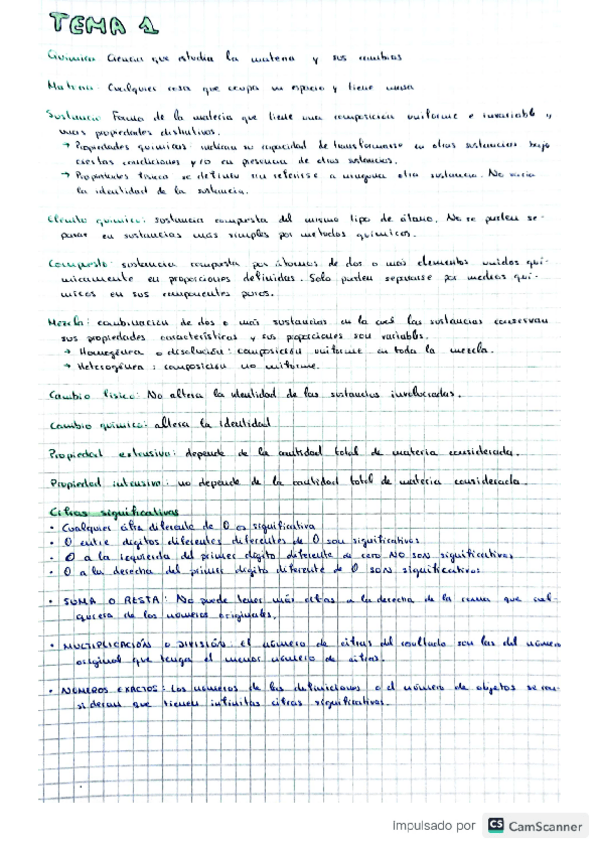 TEMA 1
Química: Ciencia que estudia la materia y sus cambios
Materia: Cualquier cosa que ocupa un espacio y tiene masa
Sustancia: Forma de la materia que tiene una composición uniforme e invariable y
unas propiedades distintivas.
→ Propiedades químicas: indican su capacidad de transformarse en otras sustancias bajo
ciertas condiciones y/o en presencia de otras sustancias.
→ Propiedades físicas se definen sin referirse a ninguna otra sustancia. No varía
la identidad de la sustancia.
Elemento químico: sustancia compuesta del mismo tipo de átomo. No se pueden se-
parar en sustancias más simples por métodos químicos.
Compuesto: sustancia compuesta por átomos de dos o más elementos unidos quí-
micamente en proporciones definidas. Solo pueden separarse por medios quí-
micos en sus componentes puros.
Mezcla: combinación de dos o más sustancias en la cual las sustancias conservan
sus propiedades características y sus proporciones son variables.
→ Homogénea o disolución: composición uniforme en toda la mezcla.
→ Heterogénea: composición no uniforme.
Cambio físico: No altera la identidad de las sustancias involucradas.
Cambio químico: altera la identidad
Propiedad extensiva: depende de la cantidad total de materia considerada.
Propiedad intensiva: no depende de la cantidad total de materia considerada.
Cifras significativas
• Cualquier cifra diferente de 0 es significativa
• 0 entre dígitos diferentes diferentes de 0 son significativos.
• 0 a la izquierda del primer dígito diferente de cero NO SON significativos
• 0 a la derecha del primer dígito diferente de 0 SON significativos
• SUMA O RESTA: No puede tener más cifras a la derecha de la coma que cual-
quiera de los números originales.
• MULTIPLICACIÓN O DIVISIÓN: el número de cifras del resultado son las del número
original que tenga el menor número de cifras.
• NÚMEROS EXACTOS: Los números de las definiciones o el número de objetos se con-
sideran que tienen infinitas cifras significativas.
Impulsado por CS CamScanner